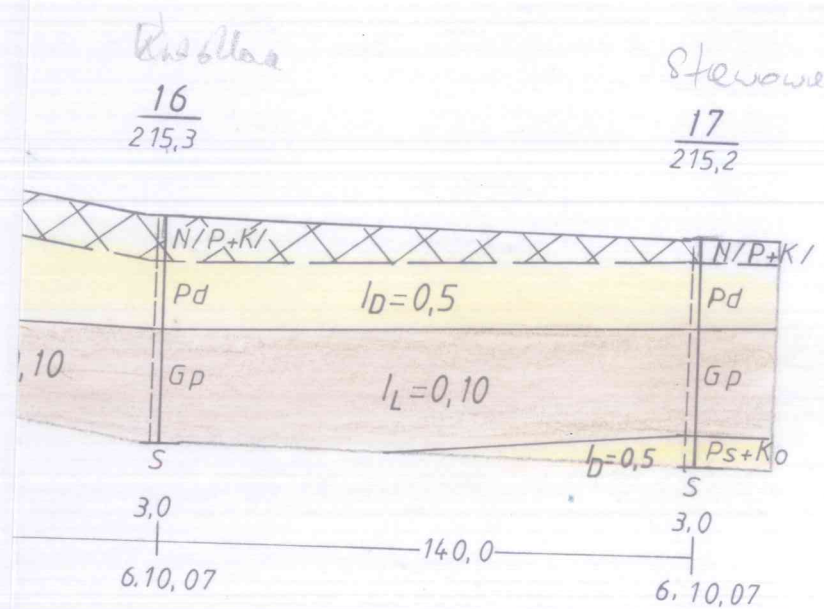 Stawowe
16
215,3
17
215,2
N/P+K/
N/P+K/
Pd
ID=0,5
Pd
,10
Gp
IL=0,10
Gp
ID=0,5
Ps+Ko
S
S
3,0
3,0
140,0
6.10,07
6.10,07